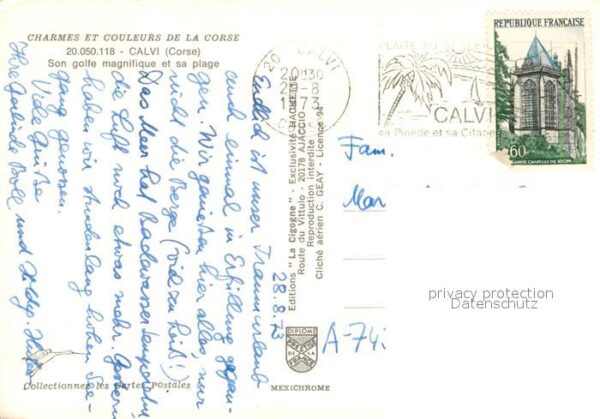 CHARMES ET COULEURS DE LA CORSE
20.050.118 - CALVI (Corse)
Son golfe magnifique et sa plage
28.8.73
Endlich ist unser Traumurlaub
auch einmal in Erfüllung gegan-
gen. Wir genießen hier alles, nur
nicht die Berge (viel zu heiß!)
Das Meer hat Badewassertemperatur,
die Luft noch etwas mehr. Gestern
haben wir stundenlang hohen See-
gang genossen.
Viele Grüße
Ihre
und
Editions "La Cigogne" - Exclusivité HACHETTE
Route du Vittulo - 20178 AJACCIO
Reproduction interdite
Cliché aérien C. GEAY - Licence 94
20 CALVI
20H30
28-8
1973
PLAGE AU SOLEIL
CALVI
sa Pinède et sa Citadelle
REPUBLIQUE FRANÇAISE
0,60
SAINTE CHAPELLE DE RIOM
Fam.
Mar
A-74
privacy protection
Datenschutz
DIPLOME
PRESTIGE
DE LA
FRANCE
Collectionnez les Cartes Postales
MEXICHROME